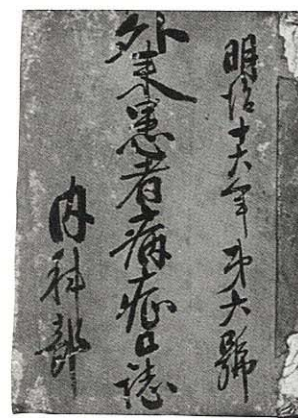 明治十六年第六號
外来患者病症日誌
内科部